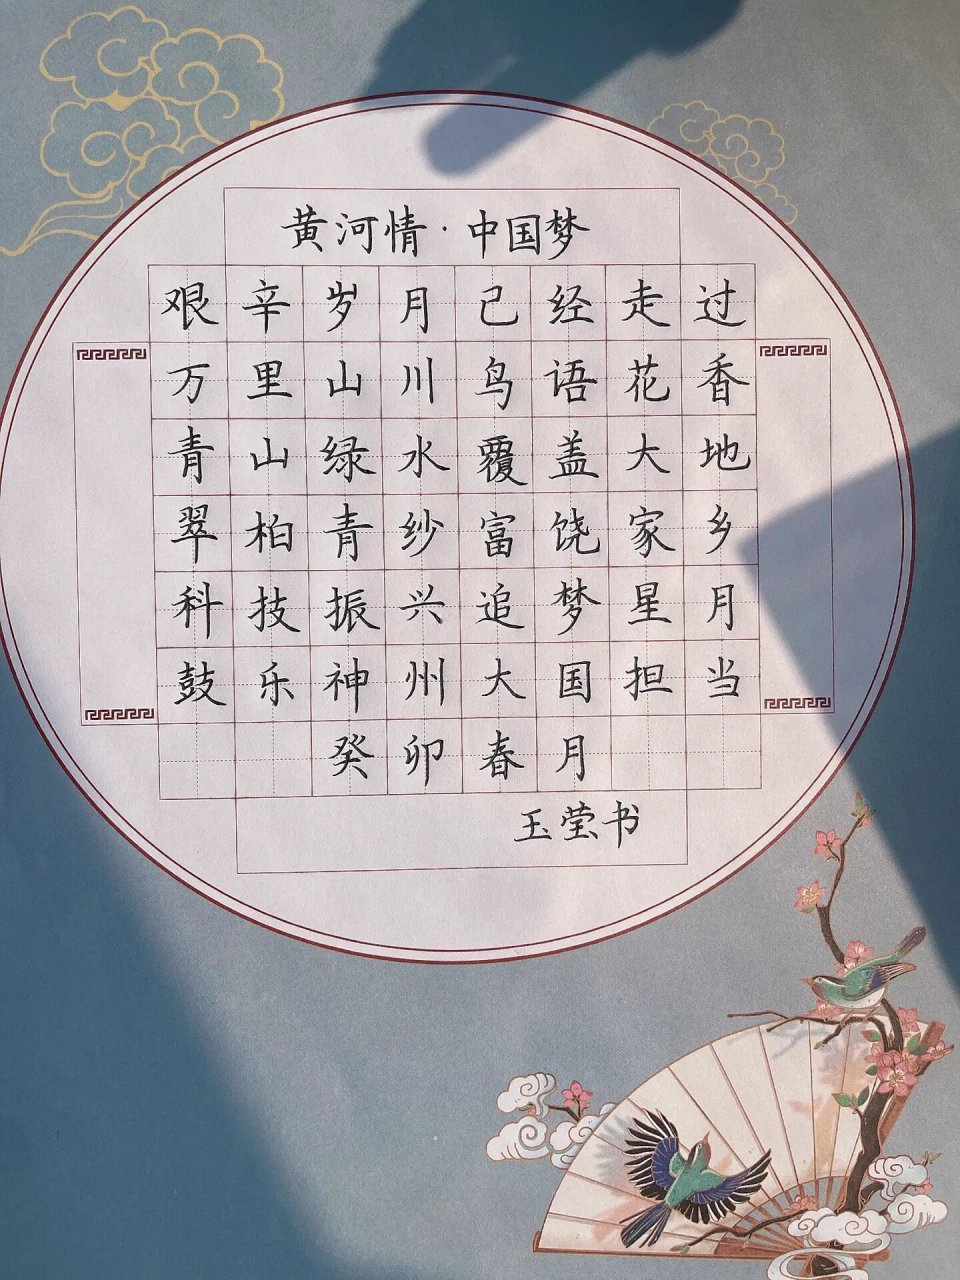 黄河情·中国梦
艰辛岁月已经走过
万里山川鸟语花香
青山绿水覆盖大地
翠柏青纱富饶家乡
科技振兴追梦星月
鼓乐神州大国担当
癸卯春月
玉莹书